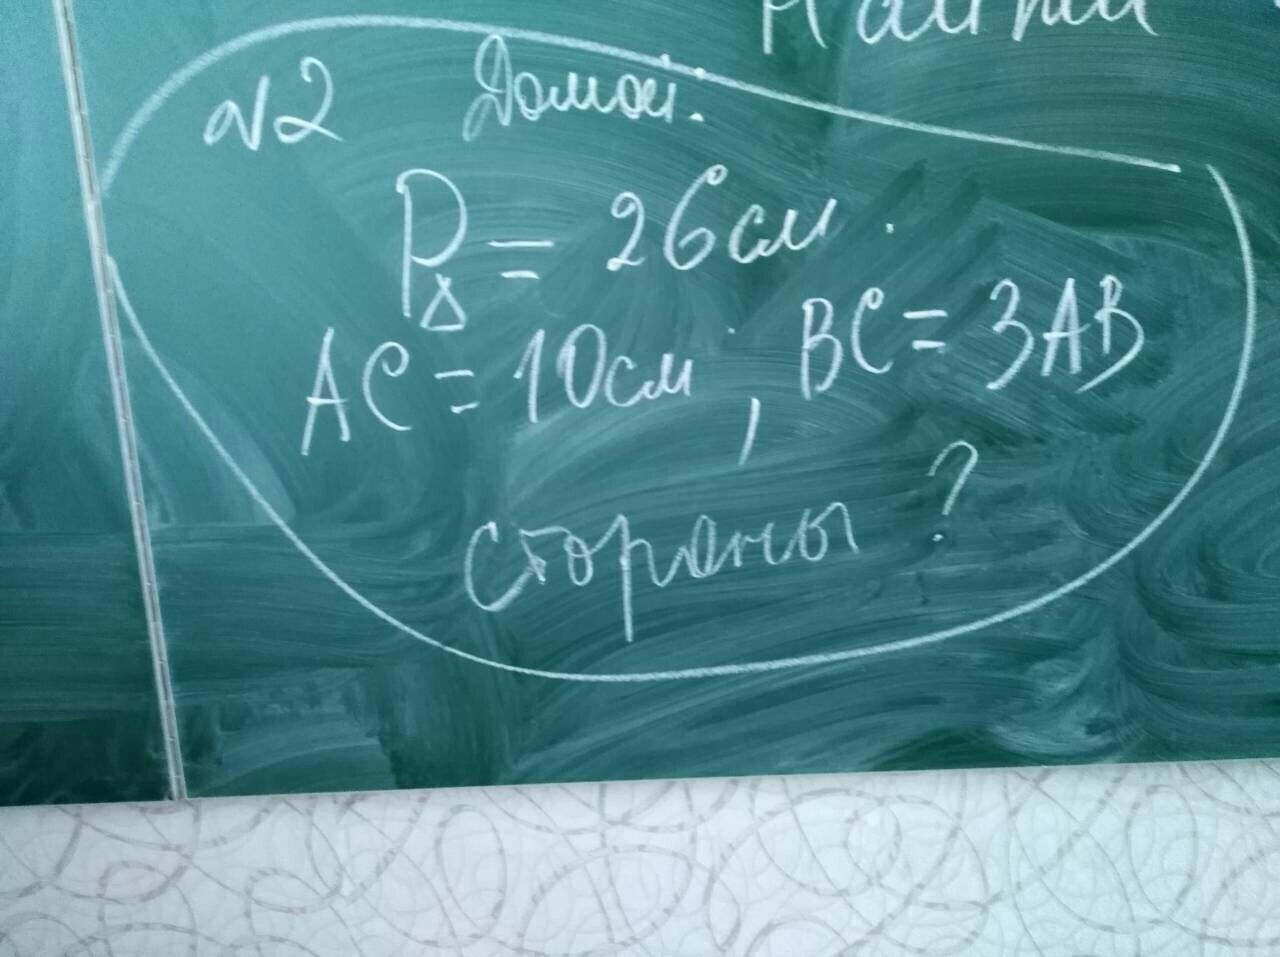 Найти
№2 Домой.
P△ = 26 см.
AC = 10 см, BC = 3AB
стороны ?